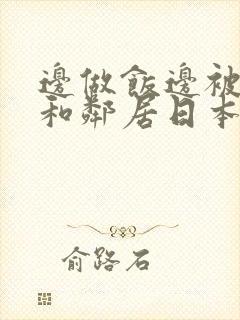 邊做飯邊被
和鄰居日本
俞路石